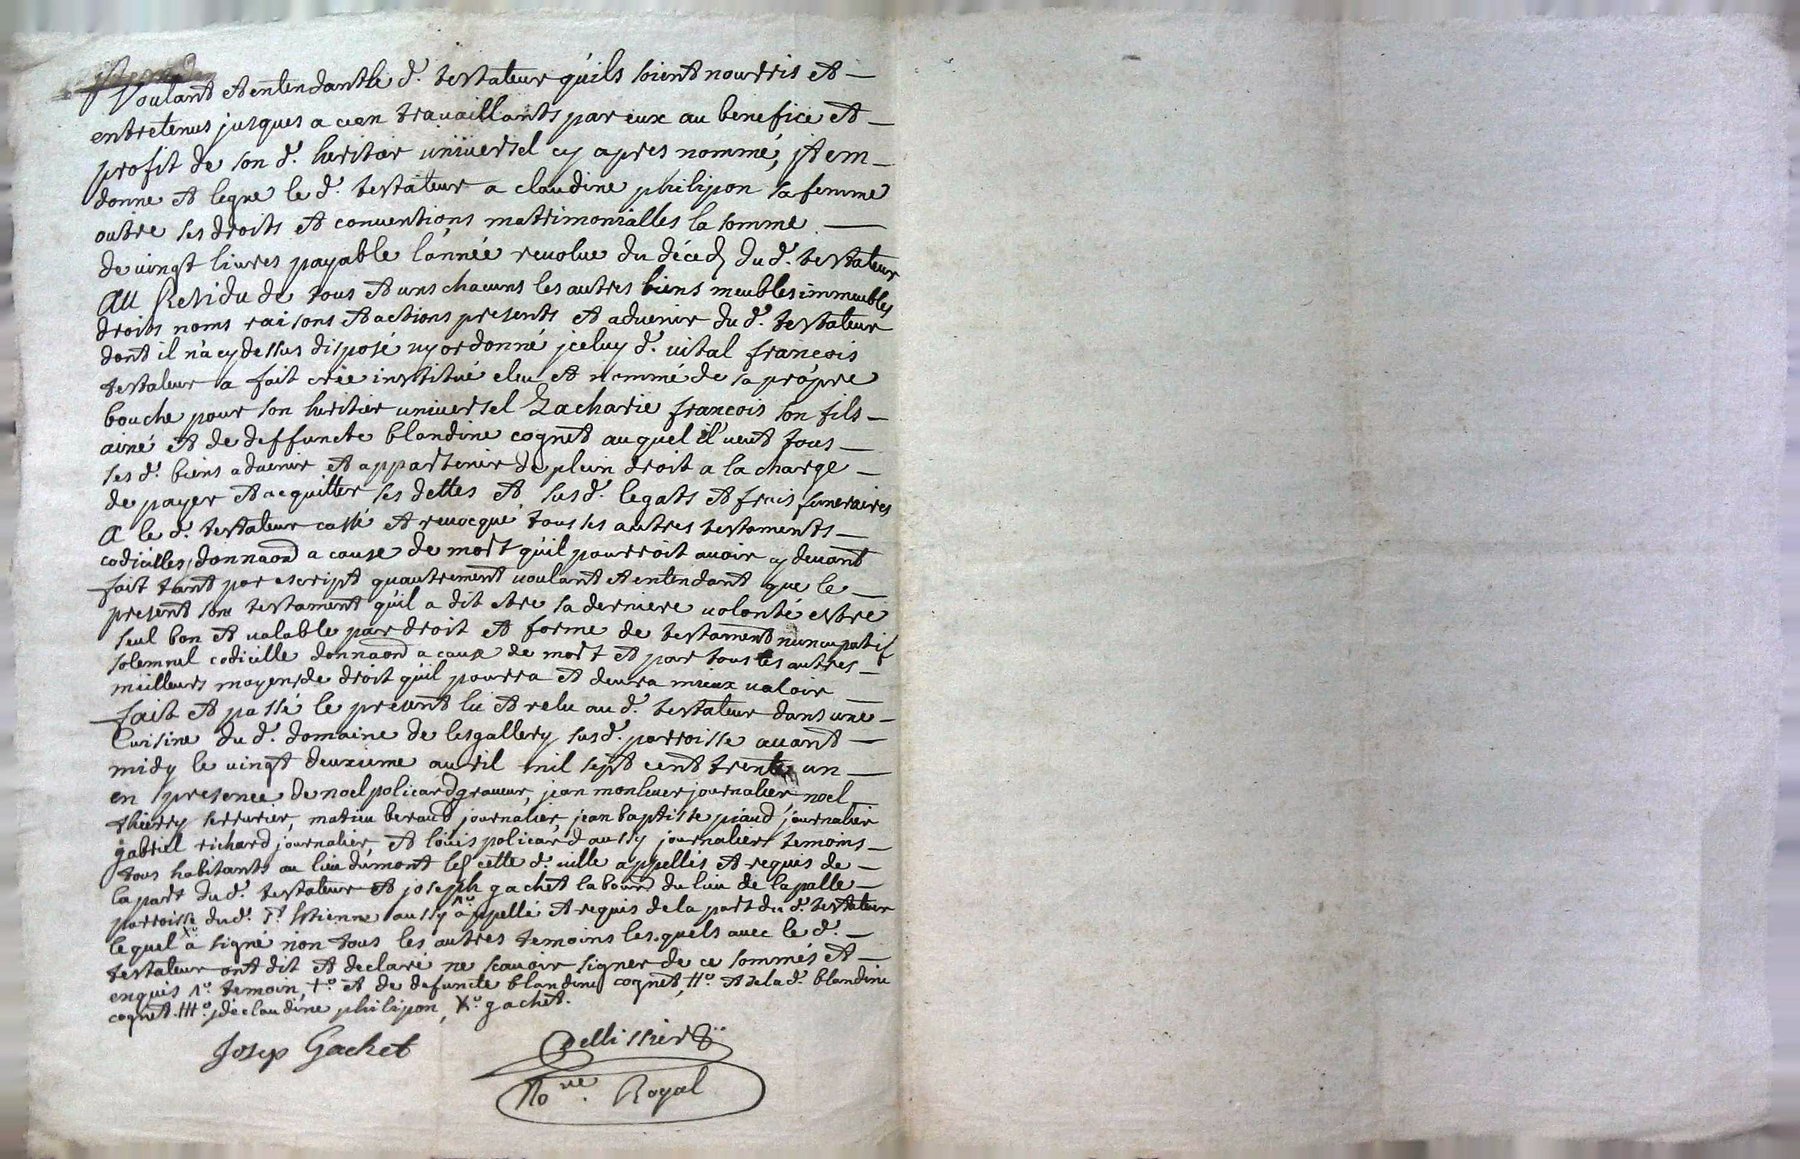 Voulant et entendant le d.t testateur quils soient nourris et
entretenus jusques a ce en travaillants par eux au benefice et
profit de son d.t heritier universel cy apres nommé, jtem
donne et legue le d.t testateur a claudine philipon sa femme
outre ses droits et conventions matrimonialles la somme
de vingt livres payable l'année revolue du décéd du d.t testateur
au Residu de tous et uns chacuns les autres biens meubles immeubles
droits noms raisons et actions presents et advenir du d.t testateur
dont il n'a cy dessus disposé ny ordonné jceluy d.t vital francois
testateur a fait crée institué eleu et nommé de sa propre
bouche pour son heritier universel Zacharie francois son fils
ainé et de deffuncte blandine cognet auquel il veut tous
ses d.t biens advenir et appartenir de plein droit a la charge
de payer et acquitter ses dettes et susd.t legats et frais funeraires
a le d.t testateur cassé et revocqué tous ses autres testaments
codicilles, donnaond a cause de mort quil pourroit avoir cy devant
fait tant par escript quautrement voulant et entendant que le
present son testament quil a dit etre sa derniere volonté estre
seul bon et valable par droit et forme de testament nuncupatif
solemnel codicille donnaond a cause de mort et par tous les autres
meilleurs moyens de droit quil pourra et devra mieux valoir
fait et passé le present lu et relu au d.t testateur dans une
Cuisine du d.t domaine de lesgallery susd.t parroisse avant
midy le vingt deuxieme avril mil sept cent trente un
en presence de noel policard graveur, jean monlever journalier noel
thierry serrurier, matieu beraud journalier, jean baptiste piaud journalier
gabriel richard journalier, et louis policard aussy journalier temoins
tous habitants au lieu dumont les cette d.t ville appellés et requis de
la part du d.t testateur et joseph gachet laboure du lieu de lapalle
parroisse dud.t St. Etienne aussy 1.º appellé et requis de la part du d.t testateur
lequel X.º a signé non tous les autres temoins lesquels avec le d.t
testateur ont dit et declaré ne scavoir signer de ce sommés et
enquis 1.º temoin, +.º et de defuncte blandine cognet, #.º et de la d.t blandine
cognet. ##.º de claudine philipon, X.º gachet.
Josep Gachet
Pellissier
No.re Royal